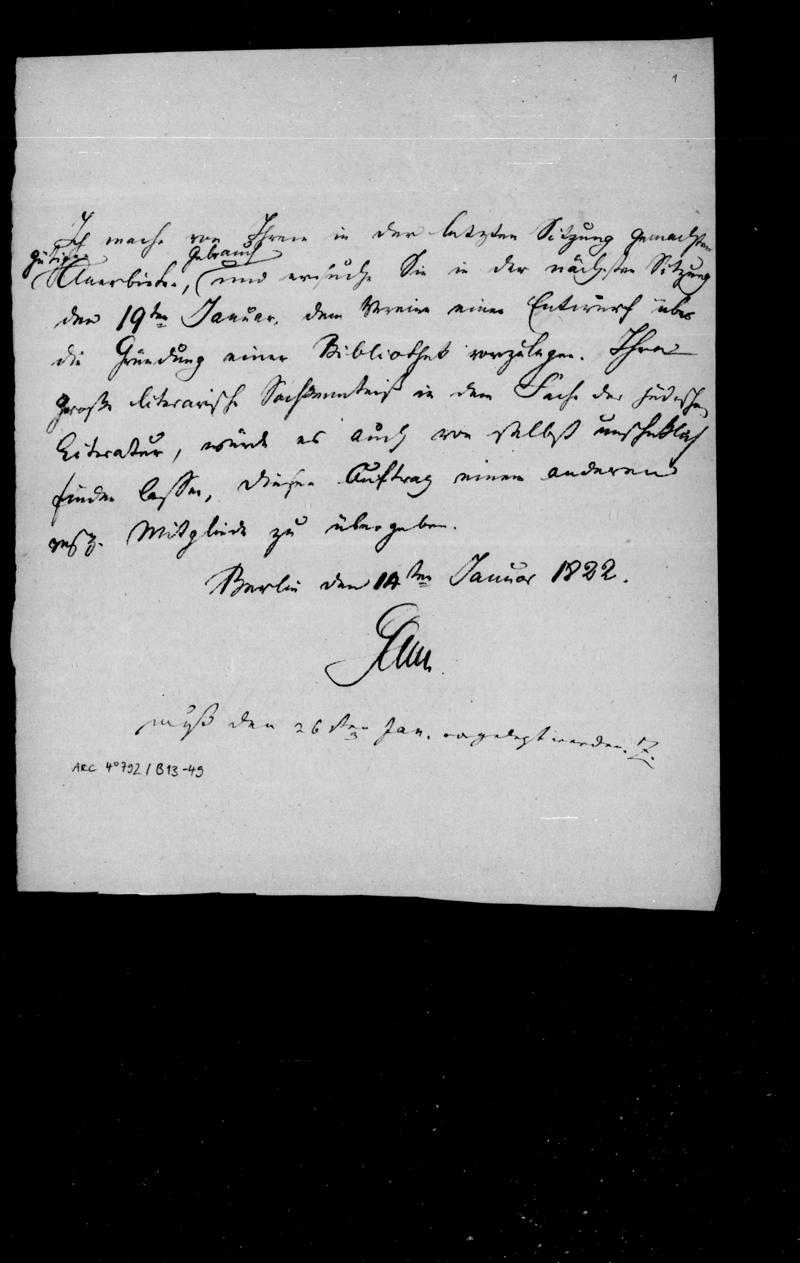 1
Ich mache von Ihrem in der letzten Sitzung gemachten
gütigen Gebrauch
Anerbieten, und ersuche Sie in der nächsten Sitzung
den 19ten Januar. dem Vereine einen Entwurf über
die Gründung einer Bibliothek vorzulegen. Ihre
große literarische Sachkenntniß in dem Fache der jüdischen
Literatur, würde es auch von selbst
finden lassen, diesen Auftrag einem anderen
Mitgliede zu übergeben.
Berlin den 14ten Januar 1822.
Gans
muß den 26sten Jan. vorgelegt werden. Z.
ARC 4° 792 / B13-49